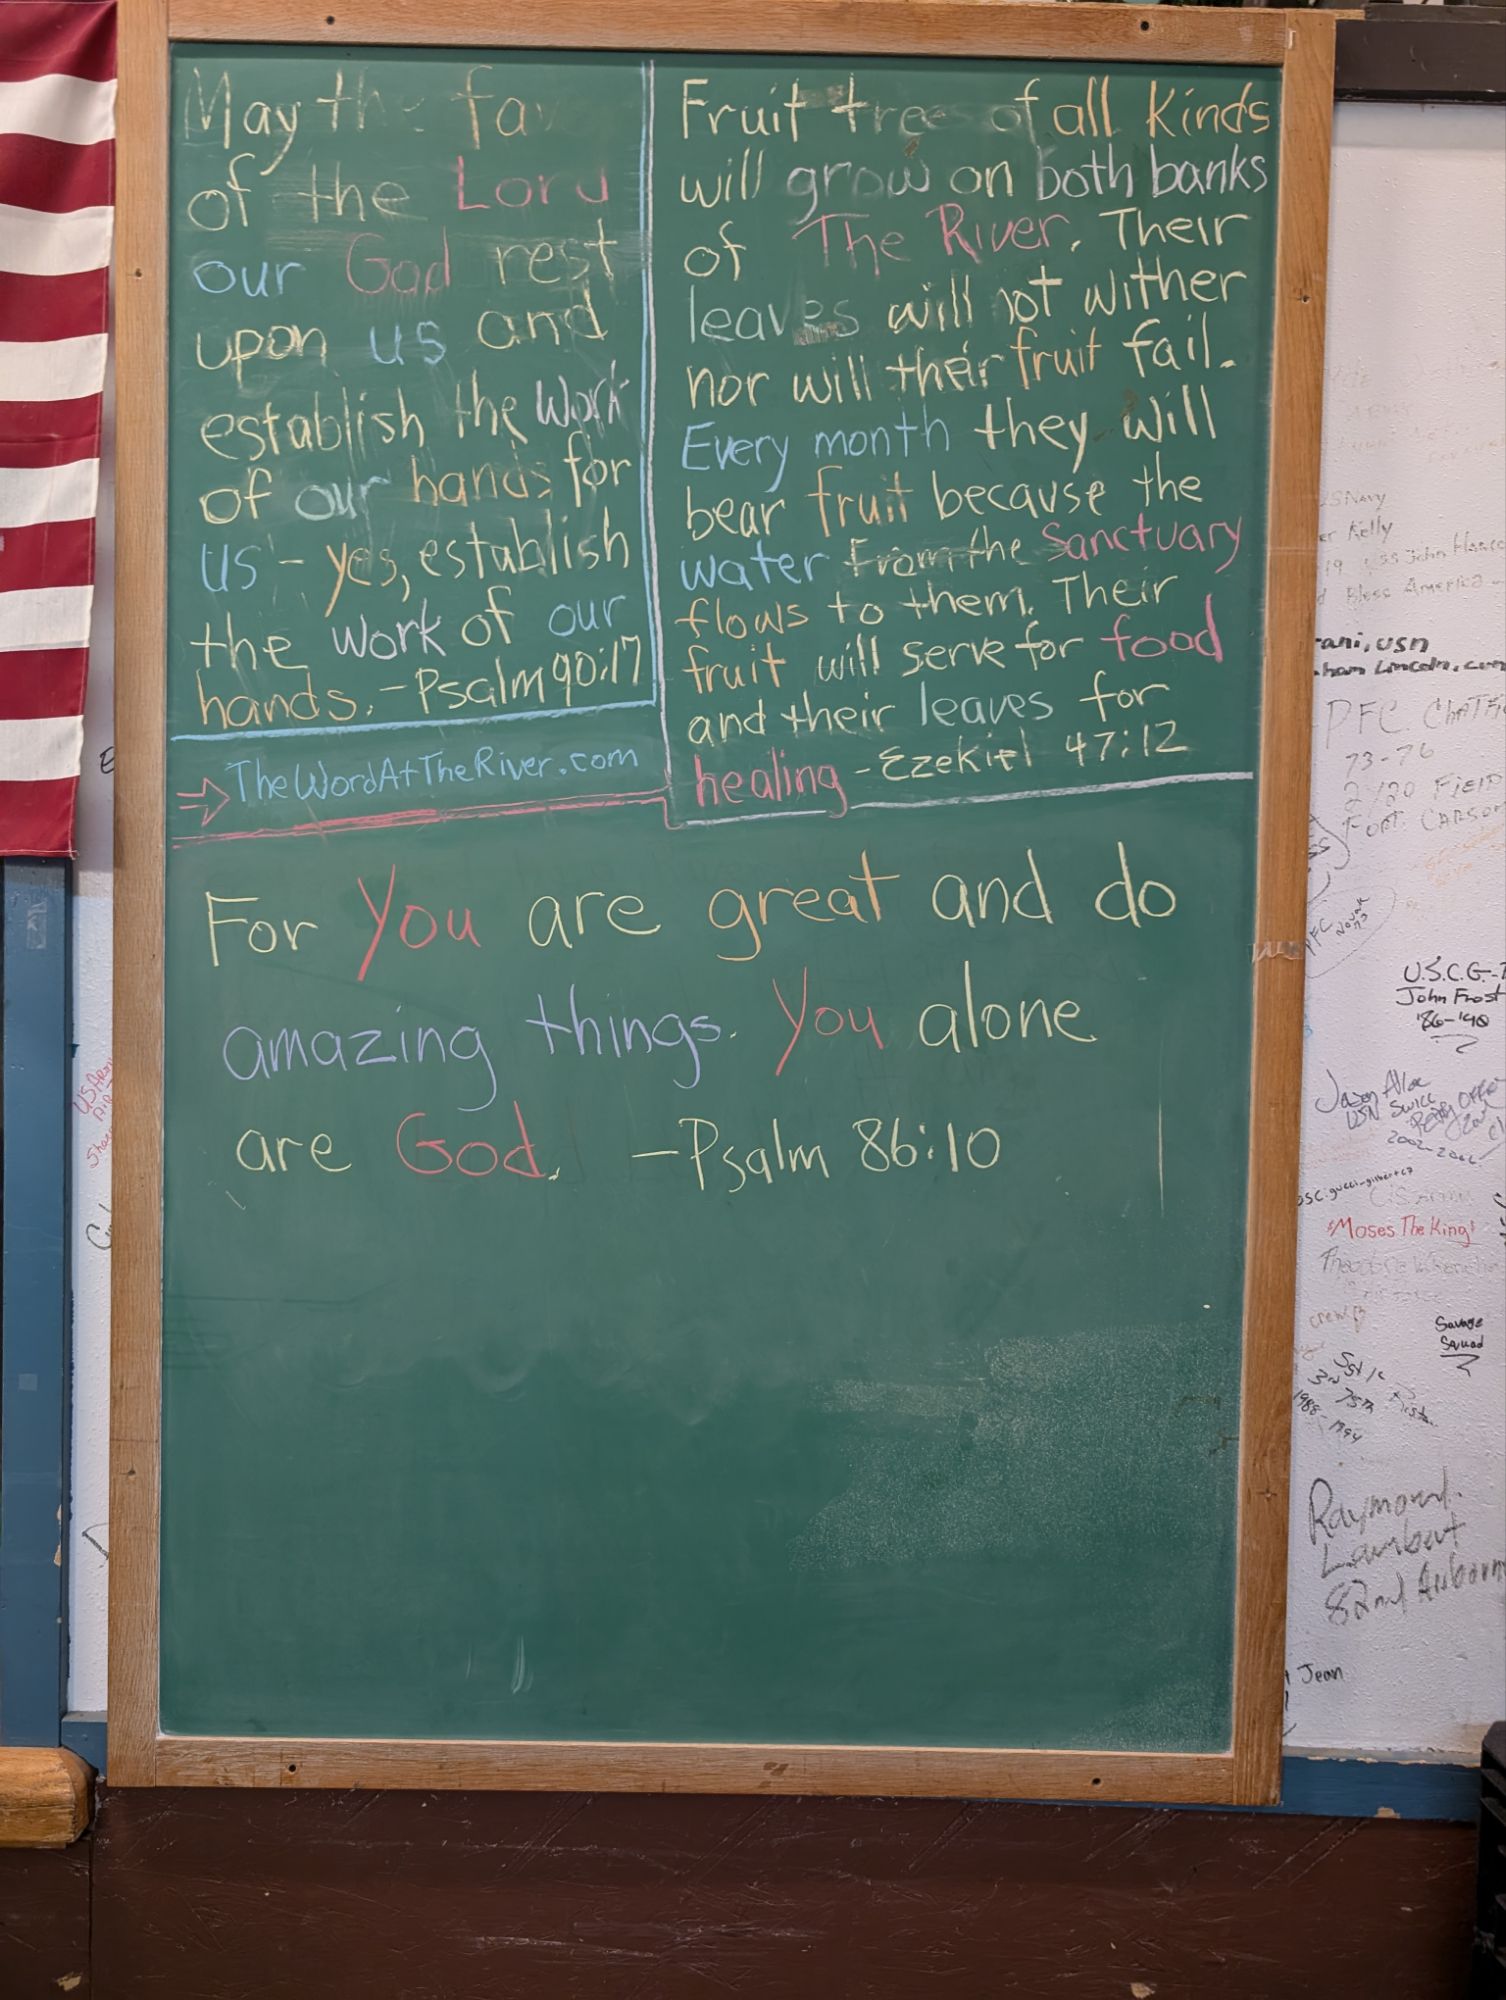 May the fav
of the Lord
our God rest
upon us and
establish the work
of our hands for
us - yes, establish
the work of our
hands. - Psalm 90:17
TheWordAtTheRiver.com
Fruit trees of all kinds
will grow on both banks
of The River. Their
leaves will not wither
nor will their fruit fail.
Every month they will
bear fruit because the
water from the Sanctuary
flows to them. Their
fruit will serve for food
and their leaves for
healing - Ezekiel 47:12
For You are great and do
amazing things. You alone
are God. - Psalm 86:10
USNavy
Kelly
19 USS John Hancoc
Bless America
rani, USN
ham Lincoln, cvn
PFC. Chatfie
73-76
2/20 Field
Fort. Carson
PFC
U.S.C.G.
John Frost
'86-'90
Jason
USN
2002-2006
US Army
*Moses The King*
Savage
Squad
75th
1988-1994
Raymond.
Lambert
82nd Airborne
Jean